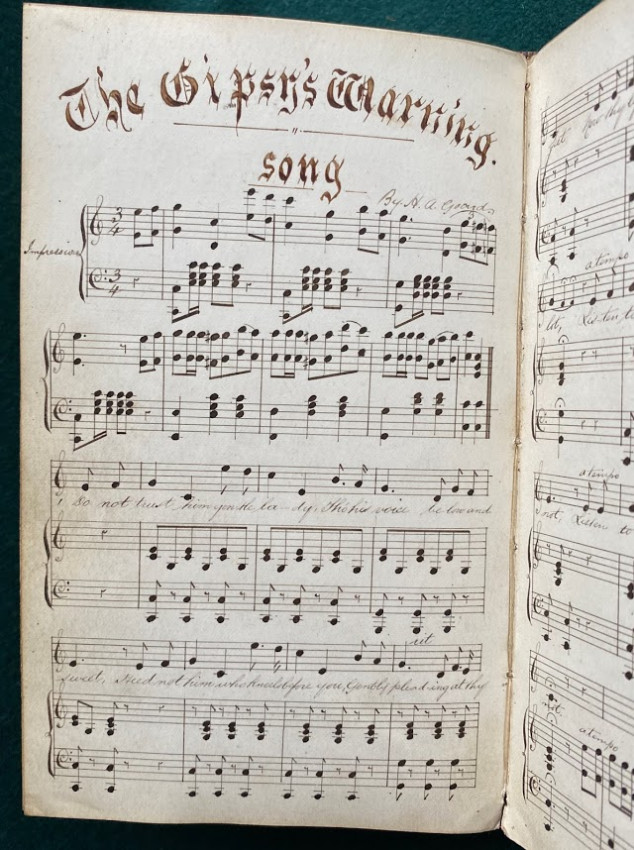 The Gipsy's Warning.
song
By H. A.
3
4
3
4
1 Do not trust him gentle la-dy, Tho his voice be low and
rit
sweet, Heed not him who kneels before you, Gently plead-ing at thy
a tempo
Listen to
a tempo
not, Listen to
rit
a tempo